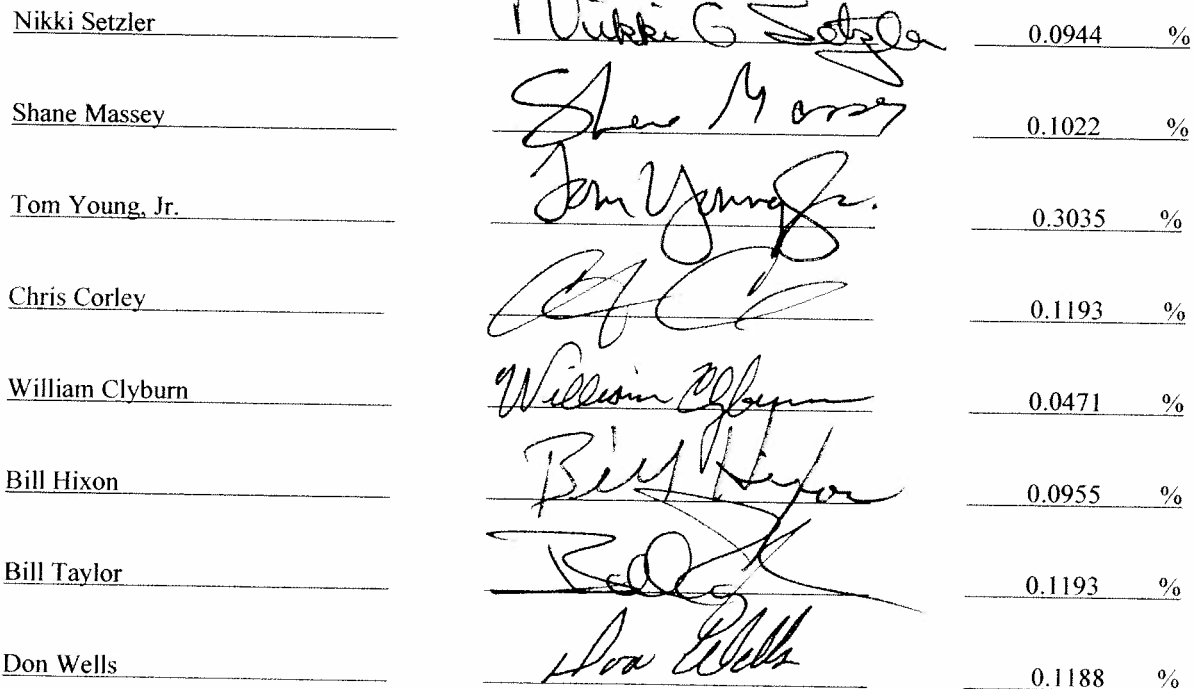 Nikki Setzler Nikki G Setzler 0.0944 %
Shane Massey Shane Massey 0.1022 %
Tom Young, Jr. Tom Young Jr. 0.3035 %
Chris Corley 0.1193 %
William Clyburn William Clyburn 0.0471 %
Bill Hixon Bill Hixon 0.0955 %
Bill Taylor 0.1193 %
Don Wells Don Wells 0.1188 %